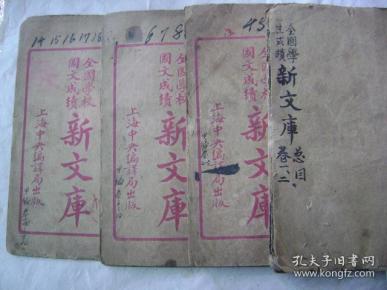 14 15 16 17 18
全國學校
國文成績
新文庫
上海中央編譯局出版
6 7 8
全國學校
國文成績
新文庫
上海中央編譯局出版
4 5
全國學校
國文成績
新文庫
上海中央編譯局出版
全國學
生成績
新文庫
总目
卷一、二
孔夫子旧书网